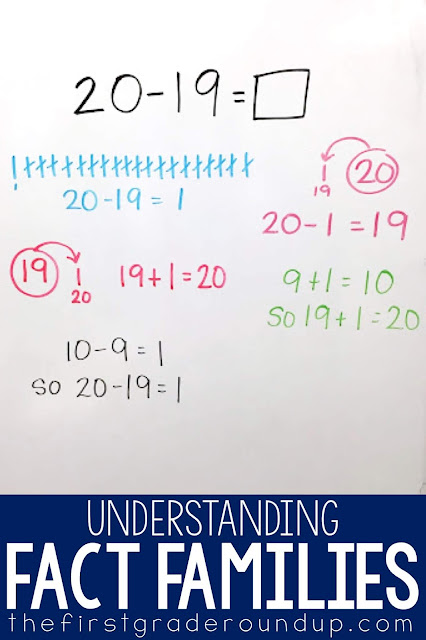 20-19=
20-19=1
1 20
19
20-1=19
19 1 19+1=20
20
9+1=10
SO 19+1=20
10-9=1
SO 20-19=1
UNDERSTANDING
FACT FAMILIES
thefirstgraderoundup.com